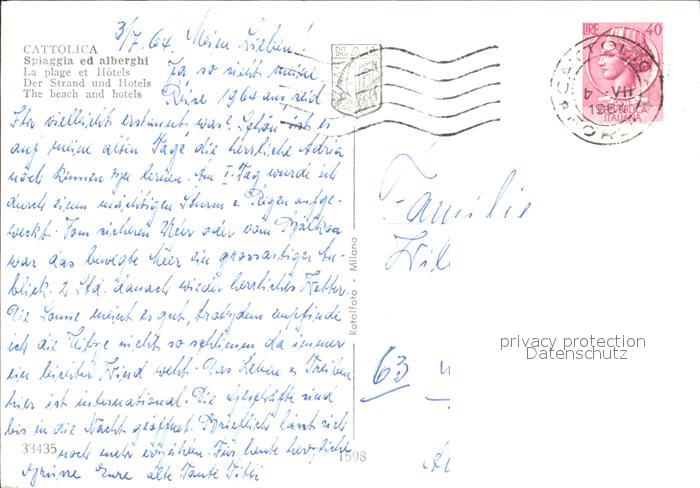 CATTOLICA
Spiaggia ed alberghi
La plage et Hôtels
Der Strand und Hotels
The beach and hotels
3/7.64. Meine Lieben!
Ja so sieht meine
Reise 1964 aus, seid
Ihr vielleicht erstaunt, was? Schön ist es
auf meine alten Tage die herrliche Adria
noch können zu lernen. Am I. Tag wurde ich
durch einen mächtigen Sturm u. Regen aufge-
weckt. Vom sicheren Meer oder vom Balkon
war das bewegte Meer ein grossartiger An-
blick. 2 Std. danach wieder herrliches Wetter.
Die Sonne meint es gut, trotzdem empfinde
ich die Hitze nicht so schlimm da immer
ein leichter Wind weht. Das Leben u. Treiben
hier ist international. Die Geschäfte sind
bis in die Nacht geöffnet. Mündlich lässt sich
noch mehr erzählen. Für heute herzliche
Grüsse Eure alte Tante
33435
1598
Rotalfoto - Milano
LIRE 40
ITALIANA
Familie
63
privacy protection
Datenschutz